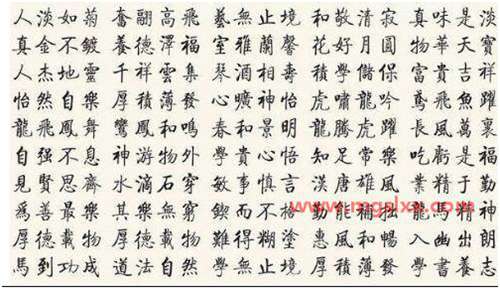 人淡如菊 奮翮高飛 藝無止境 和敬清寂 真味是淡
真金不鍍 養德澤福 室雅蘭馨 花好月圓 物華天寶
人杰地靈 千祥雲集 琴酒相壽 積學儲保 富貴吉祥
怡然自樂 厚積薄發 心曠神怡 虎嘯龍吟 鳶飛魚躍
龍飛鳳舞 鸞鳳和鳴 春和景明 龍騰虎躍 長風萬裏
自强不息 神游物外 學貴心悟 知足常樂 吃虧是福
見賢思齊 水滴石穿 敏事慎言 漢唐雄風 業精于勤
爲善最樂 其樂無窮 鍥而不 勤能補拙 龍馬精神
厚德載物 厚德載物 難得糊塗 惠風和暢 入幽出朗
馬到功成 道法自然 學無止境 厚積薄發 學書養志